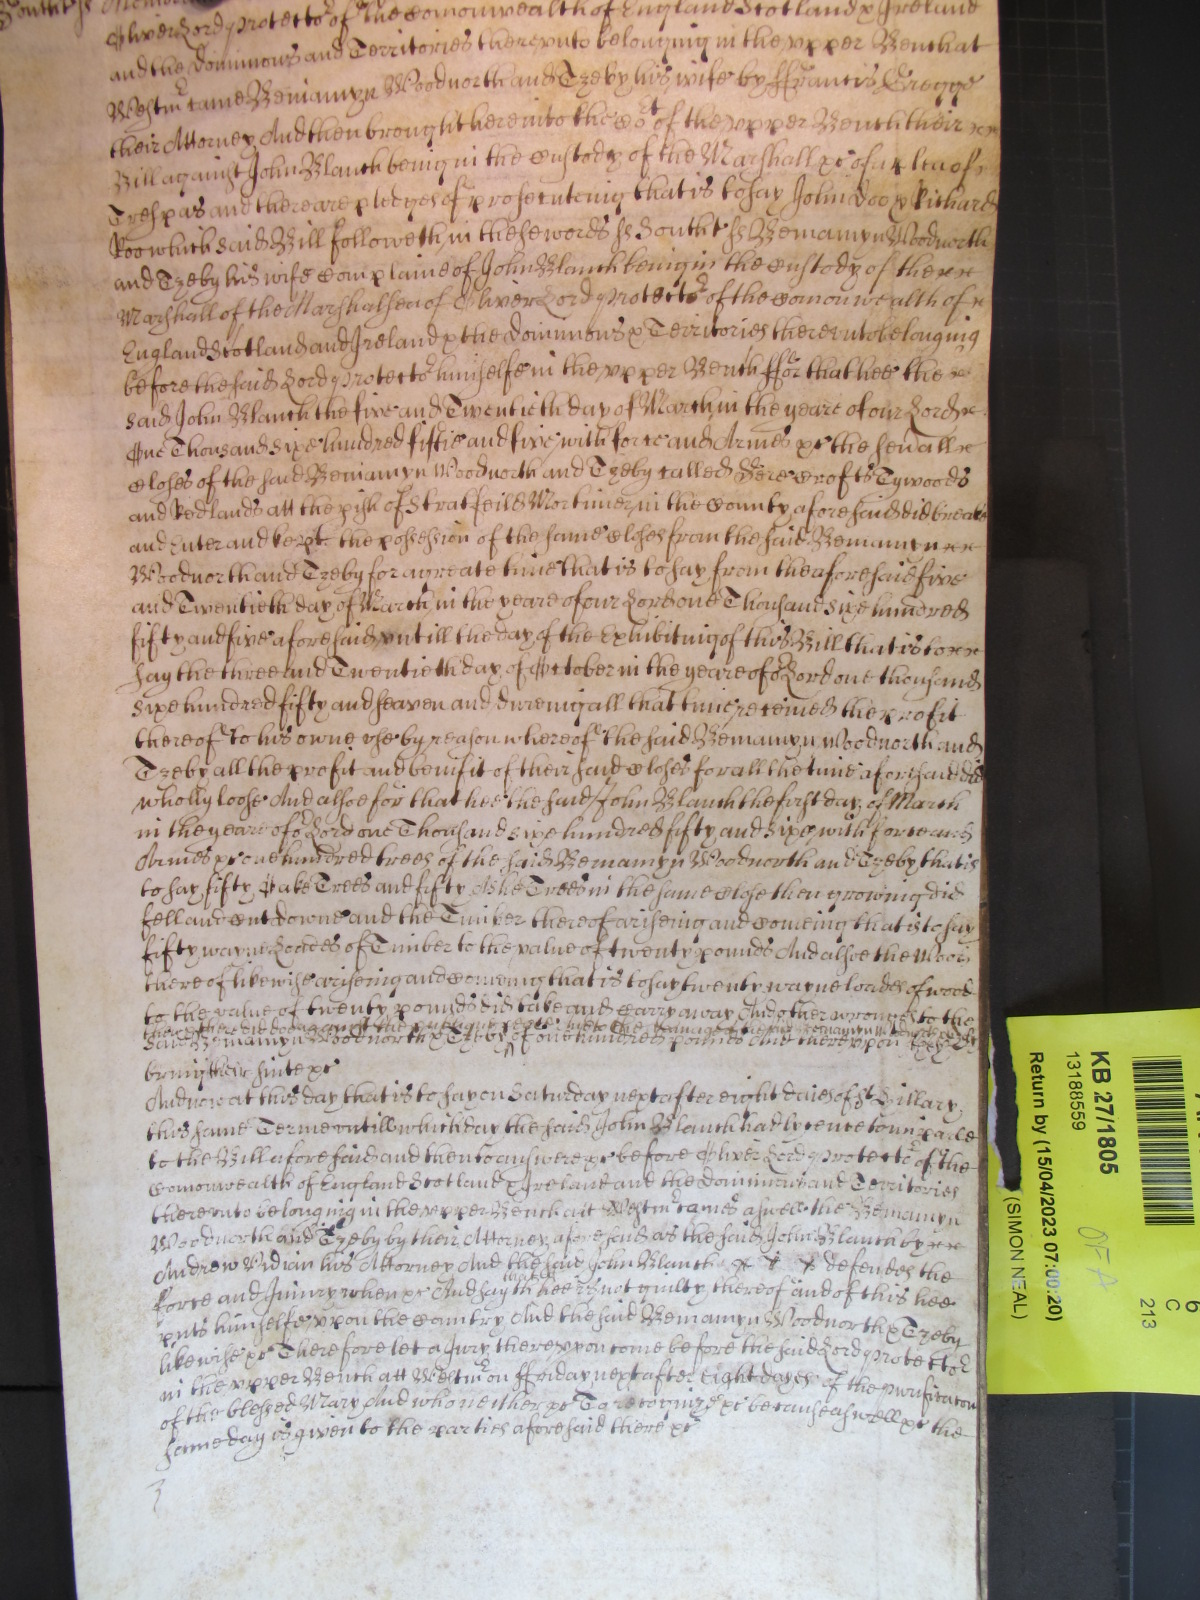 South ss Memor
Oliver Lord Protector of the Comonwealth of England Scotland & Ireland
and the Dominions and Territories therevnto belonging in the vpper Bench at
Westmr came Beniamyn Woodnorth and Tzeby his wife by ffrancis Gregge
their Attorney And then brought here into the Cort of the vpper Bench their
Bill against John Blanch being in the custody of the Marshall &c of a plea of
Trespas and there are pledges of prosecuting that is to say John Doo & Richard
Roo which said Bill followeth in these words ss Southt ss Beniamyn Woodnorth
and Tzeby his wife complaine of John Blanch being in the custody of the
Marshall of the Marshalsea of Oliver Lord Protector of the Comonwealth of
England Scotland and Ireland & the Dominions & Territories therevnto belonging
before the said Lord Protector himselfe in the vpper Bench ffor that hee the
said John Blanch the five and Twentieth day of March in the yeare of our Lord
One Thousand sixe hundred fiftie and five with force and Armes &c the severall
Closes of the said Beniamyn Woodnorth and Tzeby called Crofts Tywoods
and Redlands att the pish of Stratfeild Mortimer in the County aforesaid did breake
and Enter and kept the possession of the same Closes from the said Beniamyn
Woodnorth and Tzeby for a greate time that is to say from the aforesaid five
and Twentieth day of March in the yeare of our Lord one Thousand sixe hundred
fifty and five aforesaid vntill the day of the Exhibiting of this Bill that is to
say the three and Twentieth day of October in the yeare of or Lord one thousand
sixe hundred fifty and seaven and dureing all that time received the profit
thereof to his owne vse by reason whereof the said Beniamyn Woodnorth and
Tzeby all the profit and benifit of their said Closes for all the time aforesaid did
wholly loose And alsoe for that hee the said John Blanch the first day of March
in the yeare of or Lord one Thousand sixe hundred fifty and sixe with force and
Armes &c one hundred trees of the said Beniamyn Woodnorth and Tzeby that is
to say fifty Oake Trees and fifty Ashe Trees in the same Close then growing did
fell and Cut downe and the Timber thereof ariseing and comeing that is to say
fifty wayne Loades of Timber to the value of twenty pounds And alsoe the Wood
thereof likewise ariseing and comeing that is to say twenty wayne loades of wood
to the value of twenty pounds did take and carry away And other wronges to the
then & there did doe against the publique peace & to the damage of the said Beniamyn Woodnorth
said Beniamyn Woodnorth & Tzeby of one hundred pounds And therevpon they
bring their suite &c
And now at this day that is to say on Saturday next after eight daies of St Hillary
this same Terme vntill which day the said John Blanch had lycence to imparle
to the Bill aforesaid and then to answere &c before Oliver Lord Protector of the
Comonwealth of England Scotland & Ireland and the Dominions and Territories
therevnto belonging in the vpper Bench att Westmr came aswell the Beniamyn
Woodnorth and Tzeby by their Attorney aforesaid as the said John Blanch by
Andrew Vidian his Attorney And the said John Blanch defendes the
force and Iniury when &c And sayth hee is not guilty thereof and of this hee
puts himselfe vpon the Country And the said Beniamyn Woodnorth & Tzeby
likewise &c Therefore let a Jury therevpon come before the said Lord Protector
in the vpper Bench att Westmr on ffriday next after eight dayes of the purificacon
of the blessed Mary And who neither &c To recognize &c because aswell &c the
same day is given to the parties aforesaid there &c
KB 27/1805
13188559
Return by (15/04/2023 07:00:20)
(SIMON NEAL)
OFA
6
C
213